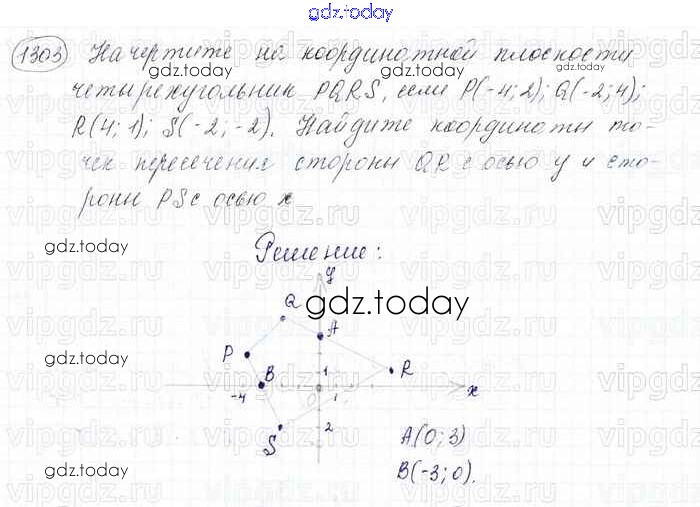 gdz.today
1303 Начертите на координатной плоскости
gdz.today
четырехугольник PQRS, если P(-4; 2); Q(-2; 4);
R(4; 1); S(-2; -2). Найдите координаты то-
чек пересечения стороны QR с осью y и сто-
роны PS с осью x
gdz.today
gdz.today
Решение:
y
Q
gdz.today
A
P
B
R
gdz.today
1
-4
0
1
x
S
2
A(0; 3)
B(-3; 0).
gdz.today
gdz.today
vipgdz.ru